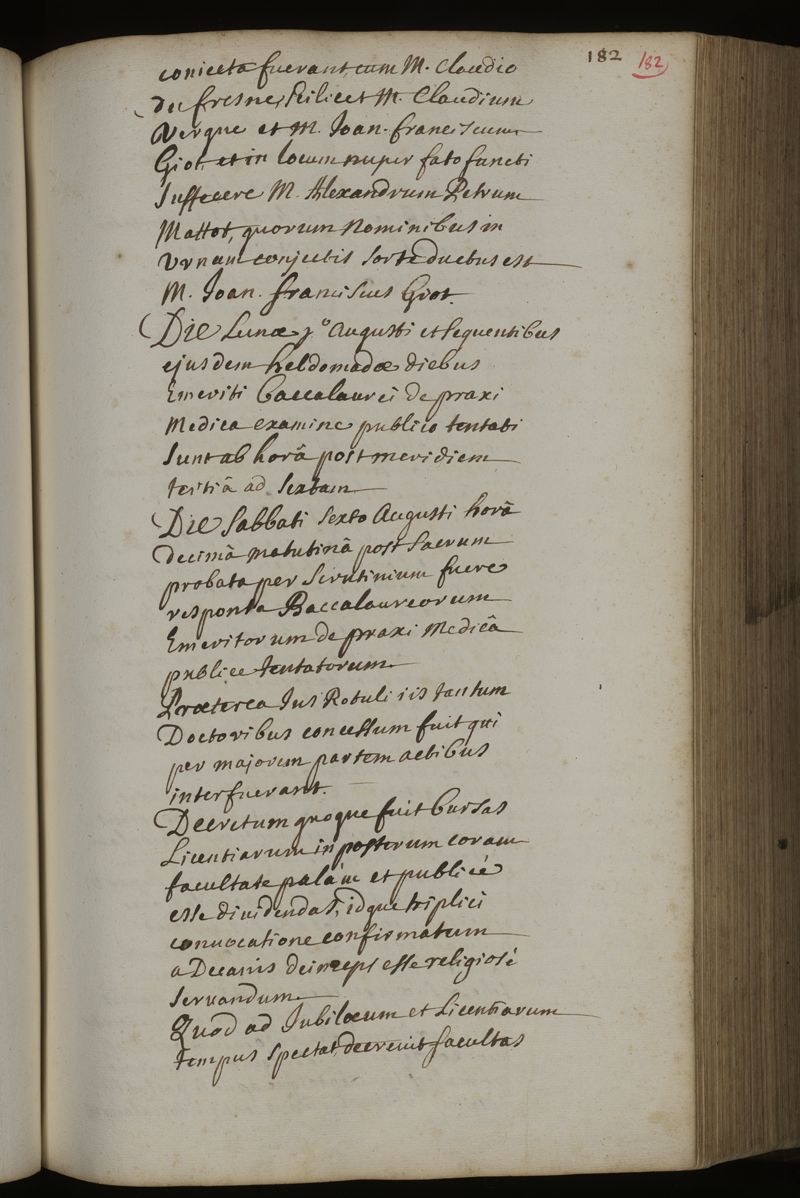 182 182
coniecta fuerant, cum M. Claudio
du fresne, scilicet M. Claudium
Vergne et M. Joan. franciscum
Giot, et in locum nuper fato functi
suffecere M. Alexandrum Petrum
Mattot, quorum Nominibus in
Vrnam conjectis sorte ductus est
M. Joan. franciscus Giot.
Die Lunæ j.º Augusti et sequentibus
ejusdem hebdomadæ diebus
Emeriti baccalaurei de praxi
Medica examine publico tentati
sunt ab horâ post meridiem
tertiâ ad sextam
Die Sabbati sexto Augusti horâ
decimâ matutinâ post sacrum
probata per scrutinium fuere
responsa Baccalaureorum
Emeritorum de praxi Medicâ
publice tentatorum
Præterea Jus Rotuli iis tantum
Doctoribus concessum fuit qui
per majorem partem actibus
interfuerant.
Decretum quoque fuit bursas
Licentiarum in posterum coram
facultate palàm et publicè
esse dividendas, idque triplici
convocatione confirmatum
a Decanis deinceps esse religiosè
servandum
Quod ad Jubilæum et Licentiarum
tempus spectat, decrevit facultas